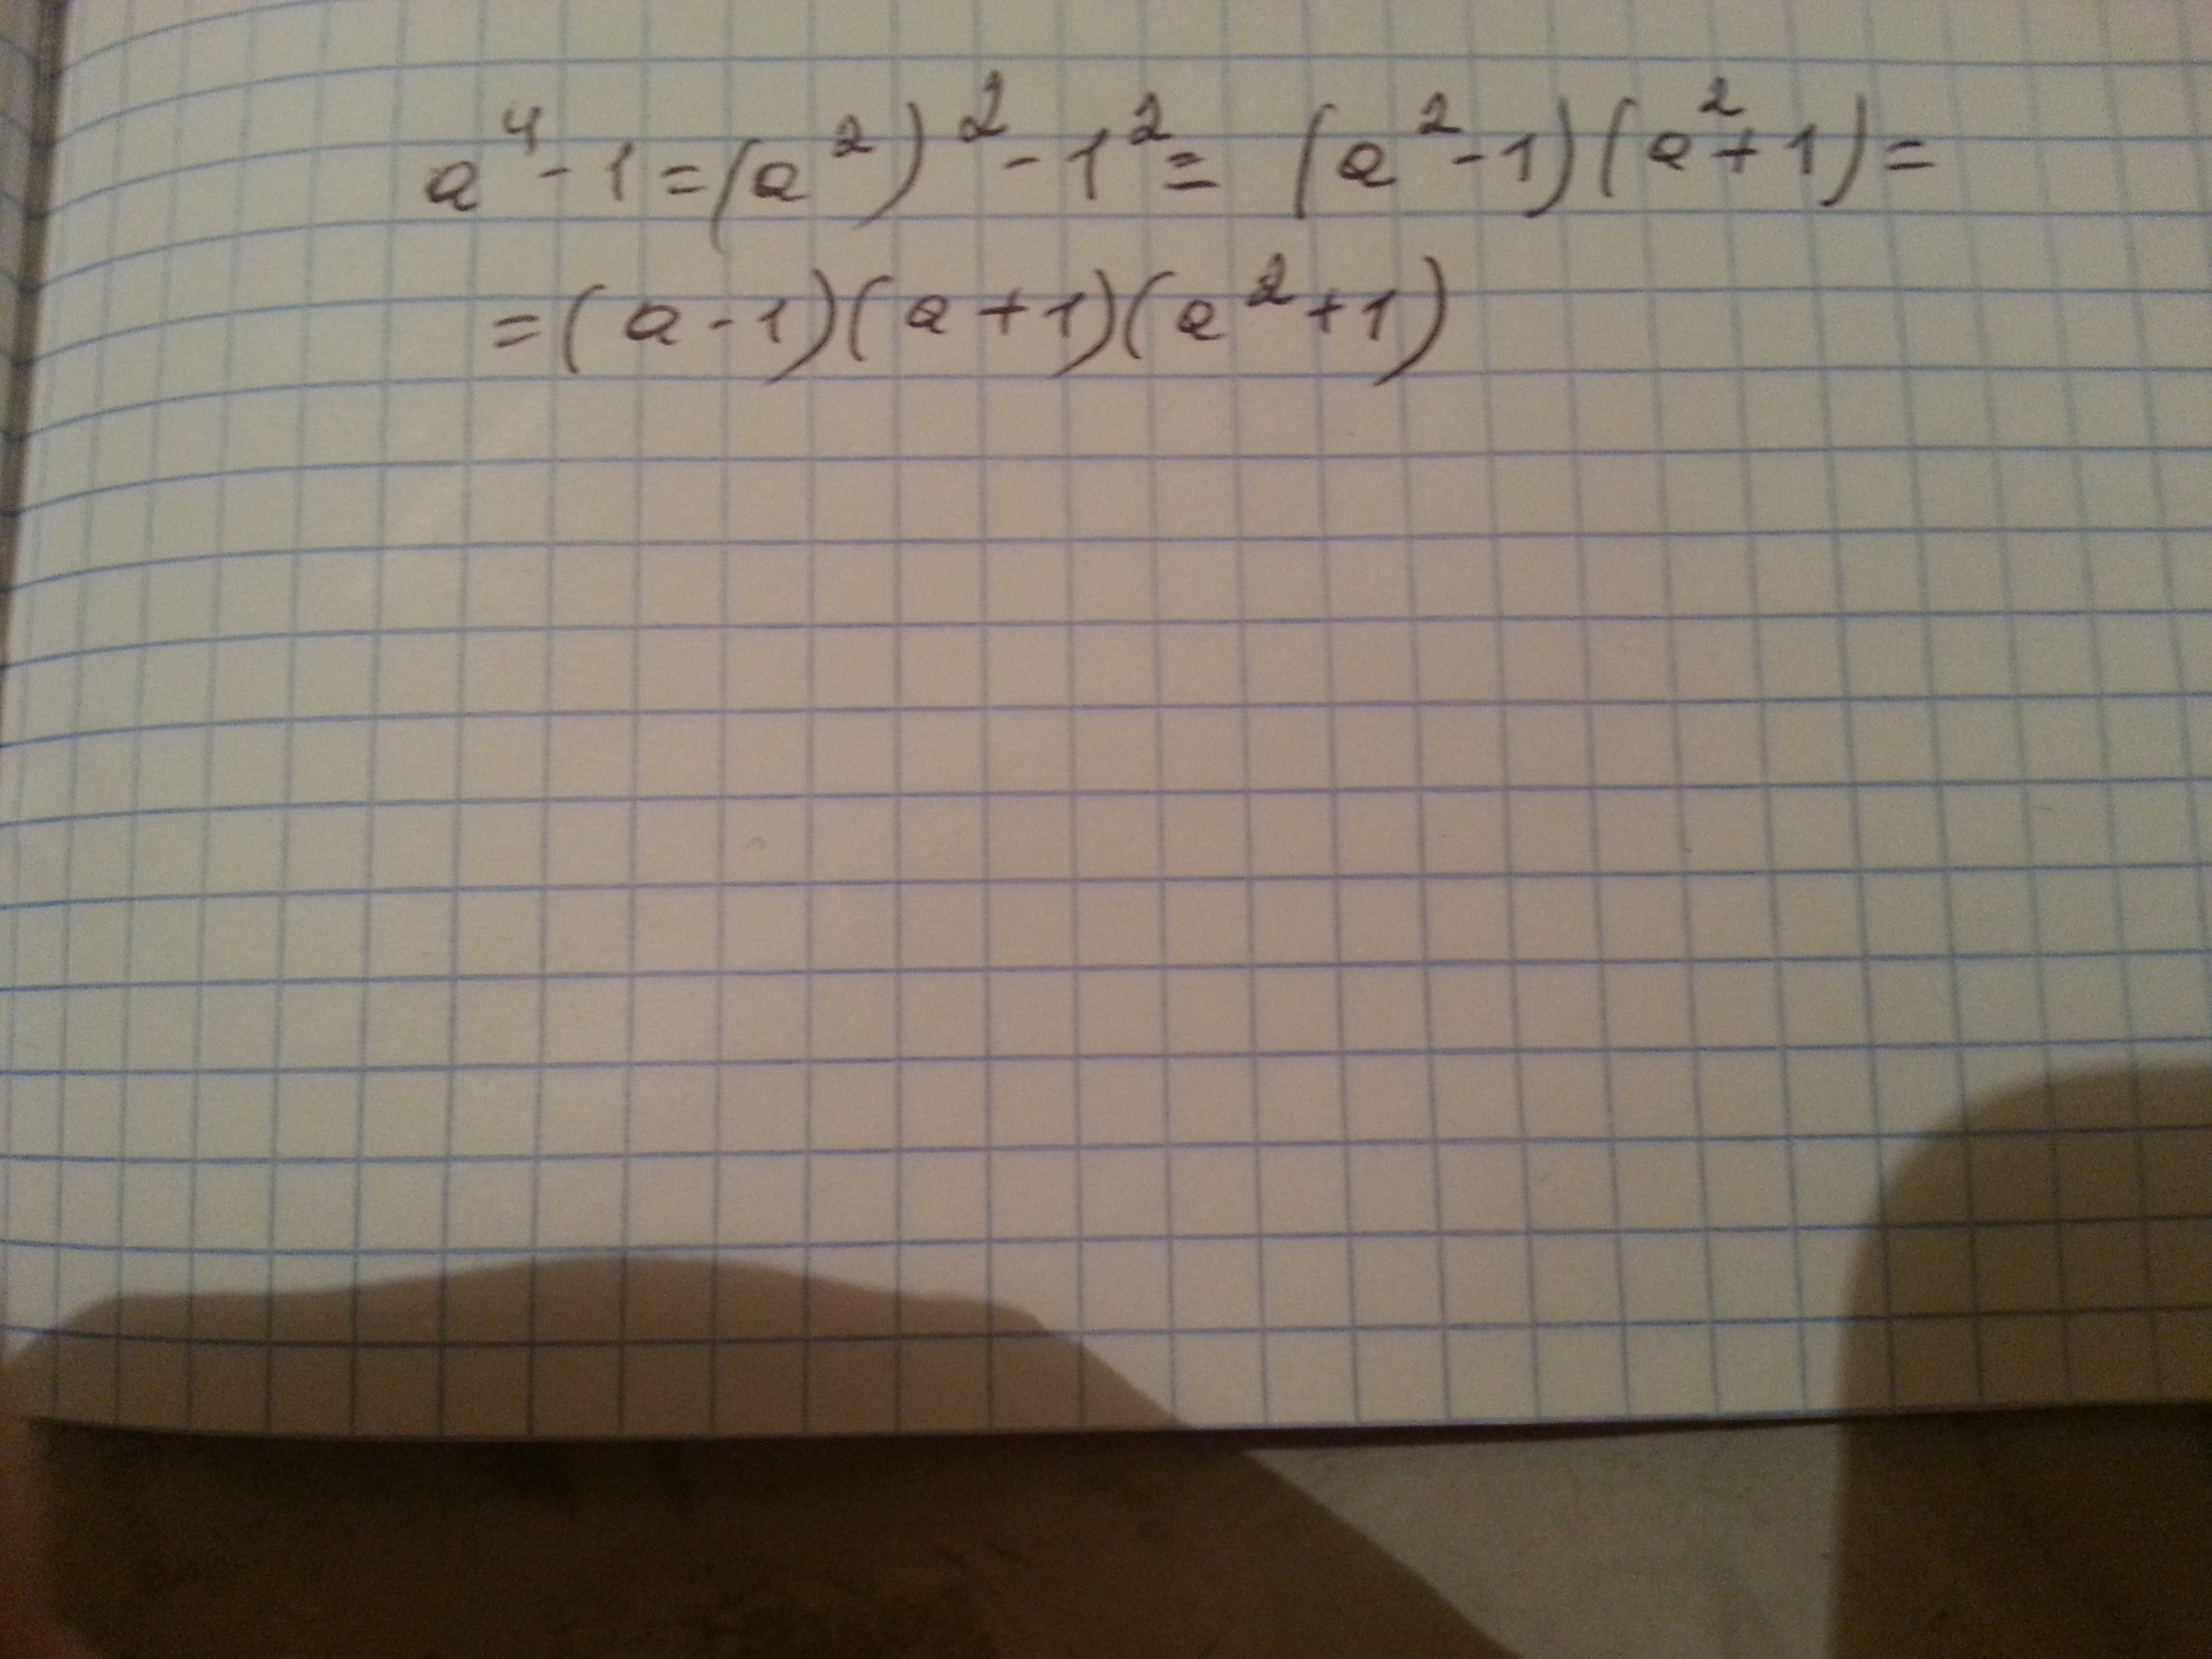 a⁴ - 1 = (a²)² - 1² = (a² - 1)(a² + 1) =
= (a - 1)(a + 1)(a² + 1)